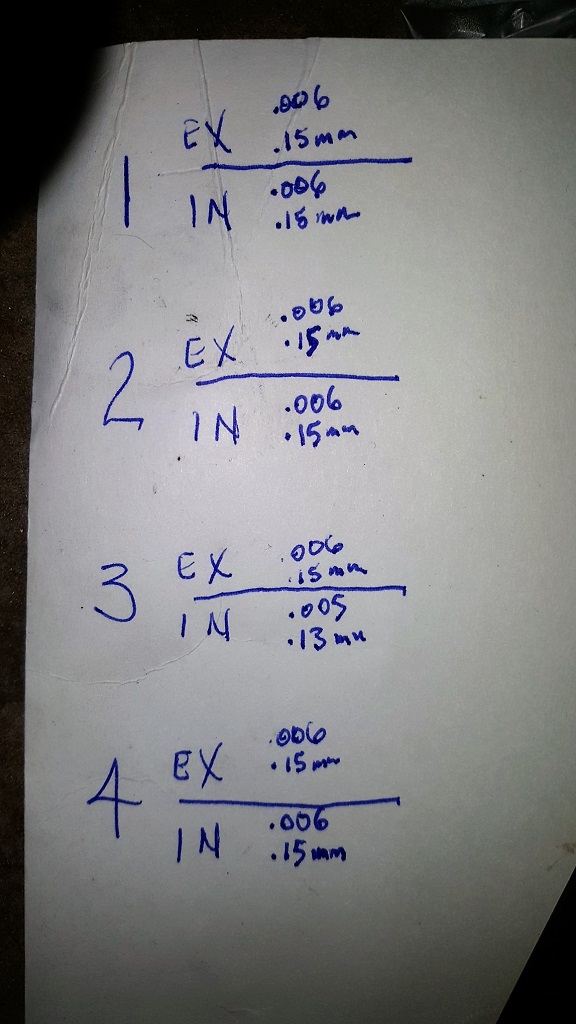 1
EX .006
.15mm
IN .006
.15mm
2
EX .006
.15mm
IN .006
.15mm
3
EX .006
.15mm
IN .005
.13mm
4
EX .006
.15mm
IN .006
.15mm